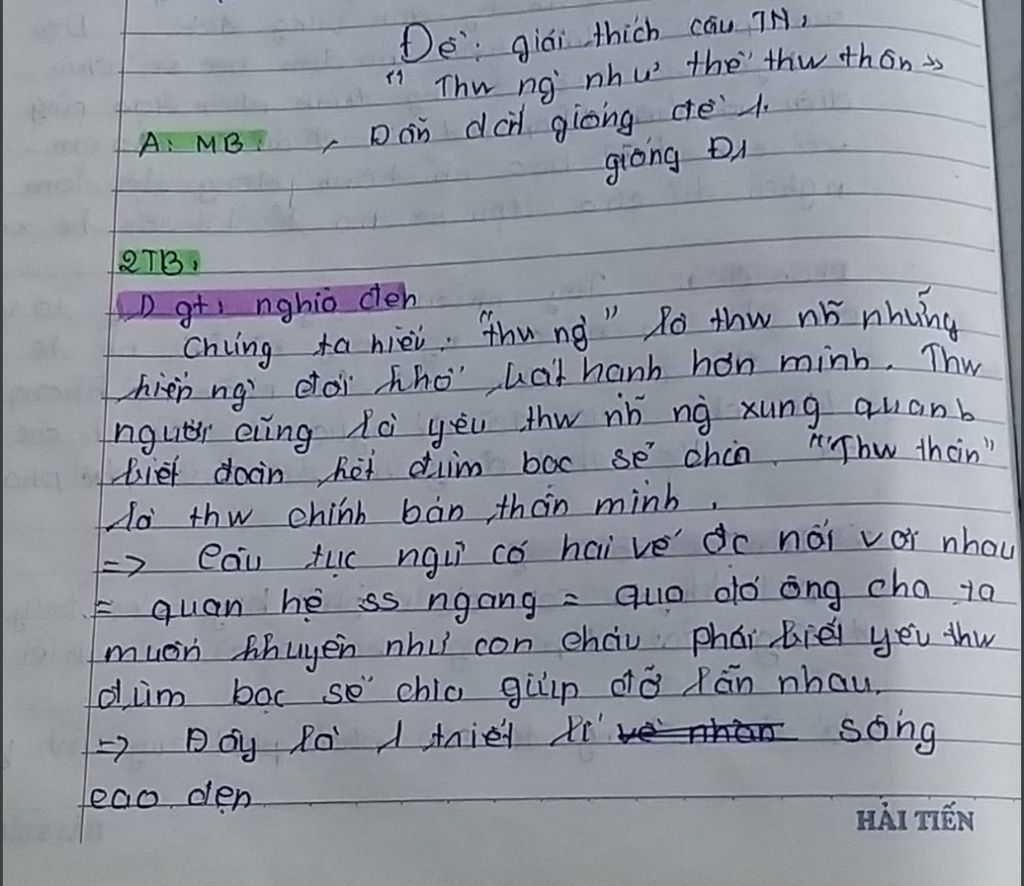 Đề: giải thích câu TN:
"Thư ng` như thể thư thân"
A: MB: - Dẫn dắt giống đề 1.
giống Đ1
2TB:
1) gt: nghĩa đen
Chúng ta hiểu: "thư ng`" là thư nh~ những
kiếp ng` đói khổ, bất hạnh hơn mình. Thư
người cũng là yêu thư nh~ ng` xung quanh
biết đoàn kết đùm bọc sẻ chia. "Thư thân"
là thư chính bản thân mình.
=> Câu tục ngữ có hai vế đc nối với nhau
= quan hệ ss ngang = qua đó ông cha ta
muốn khuyên nhủ con cháu phải biết yêu thư
đùm bọc sẻ chia giúp đỡ lẫn nhau.
=> Đây là 1 triết lí về nhân sống
cao đẹp
HẢI TIẾN